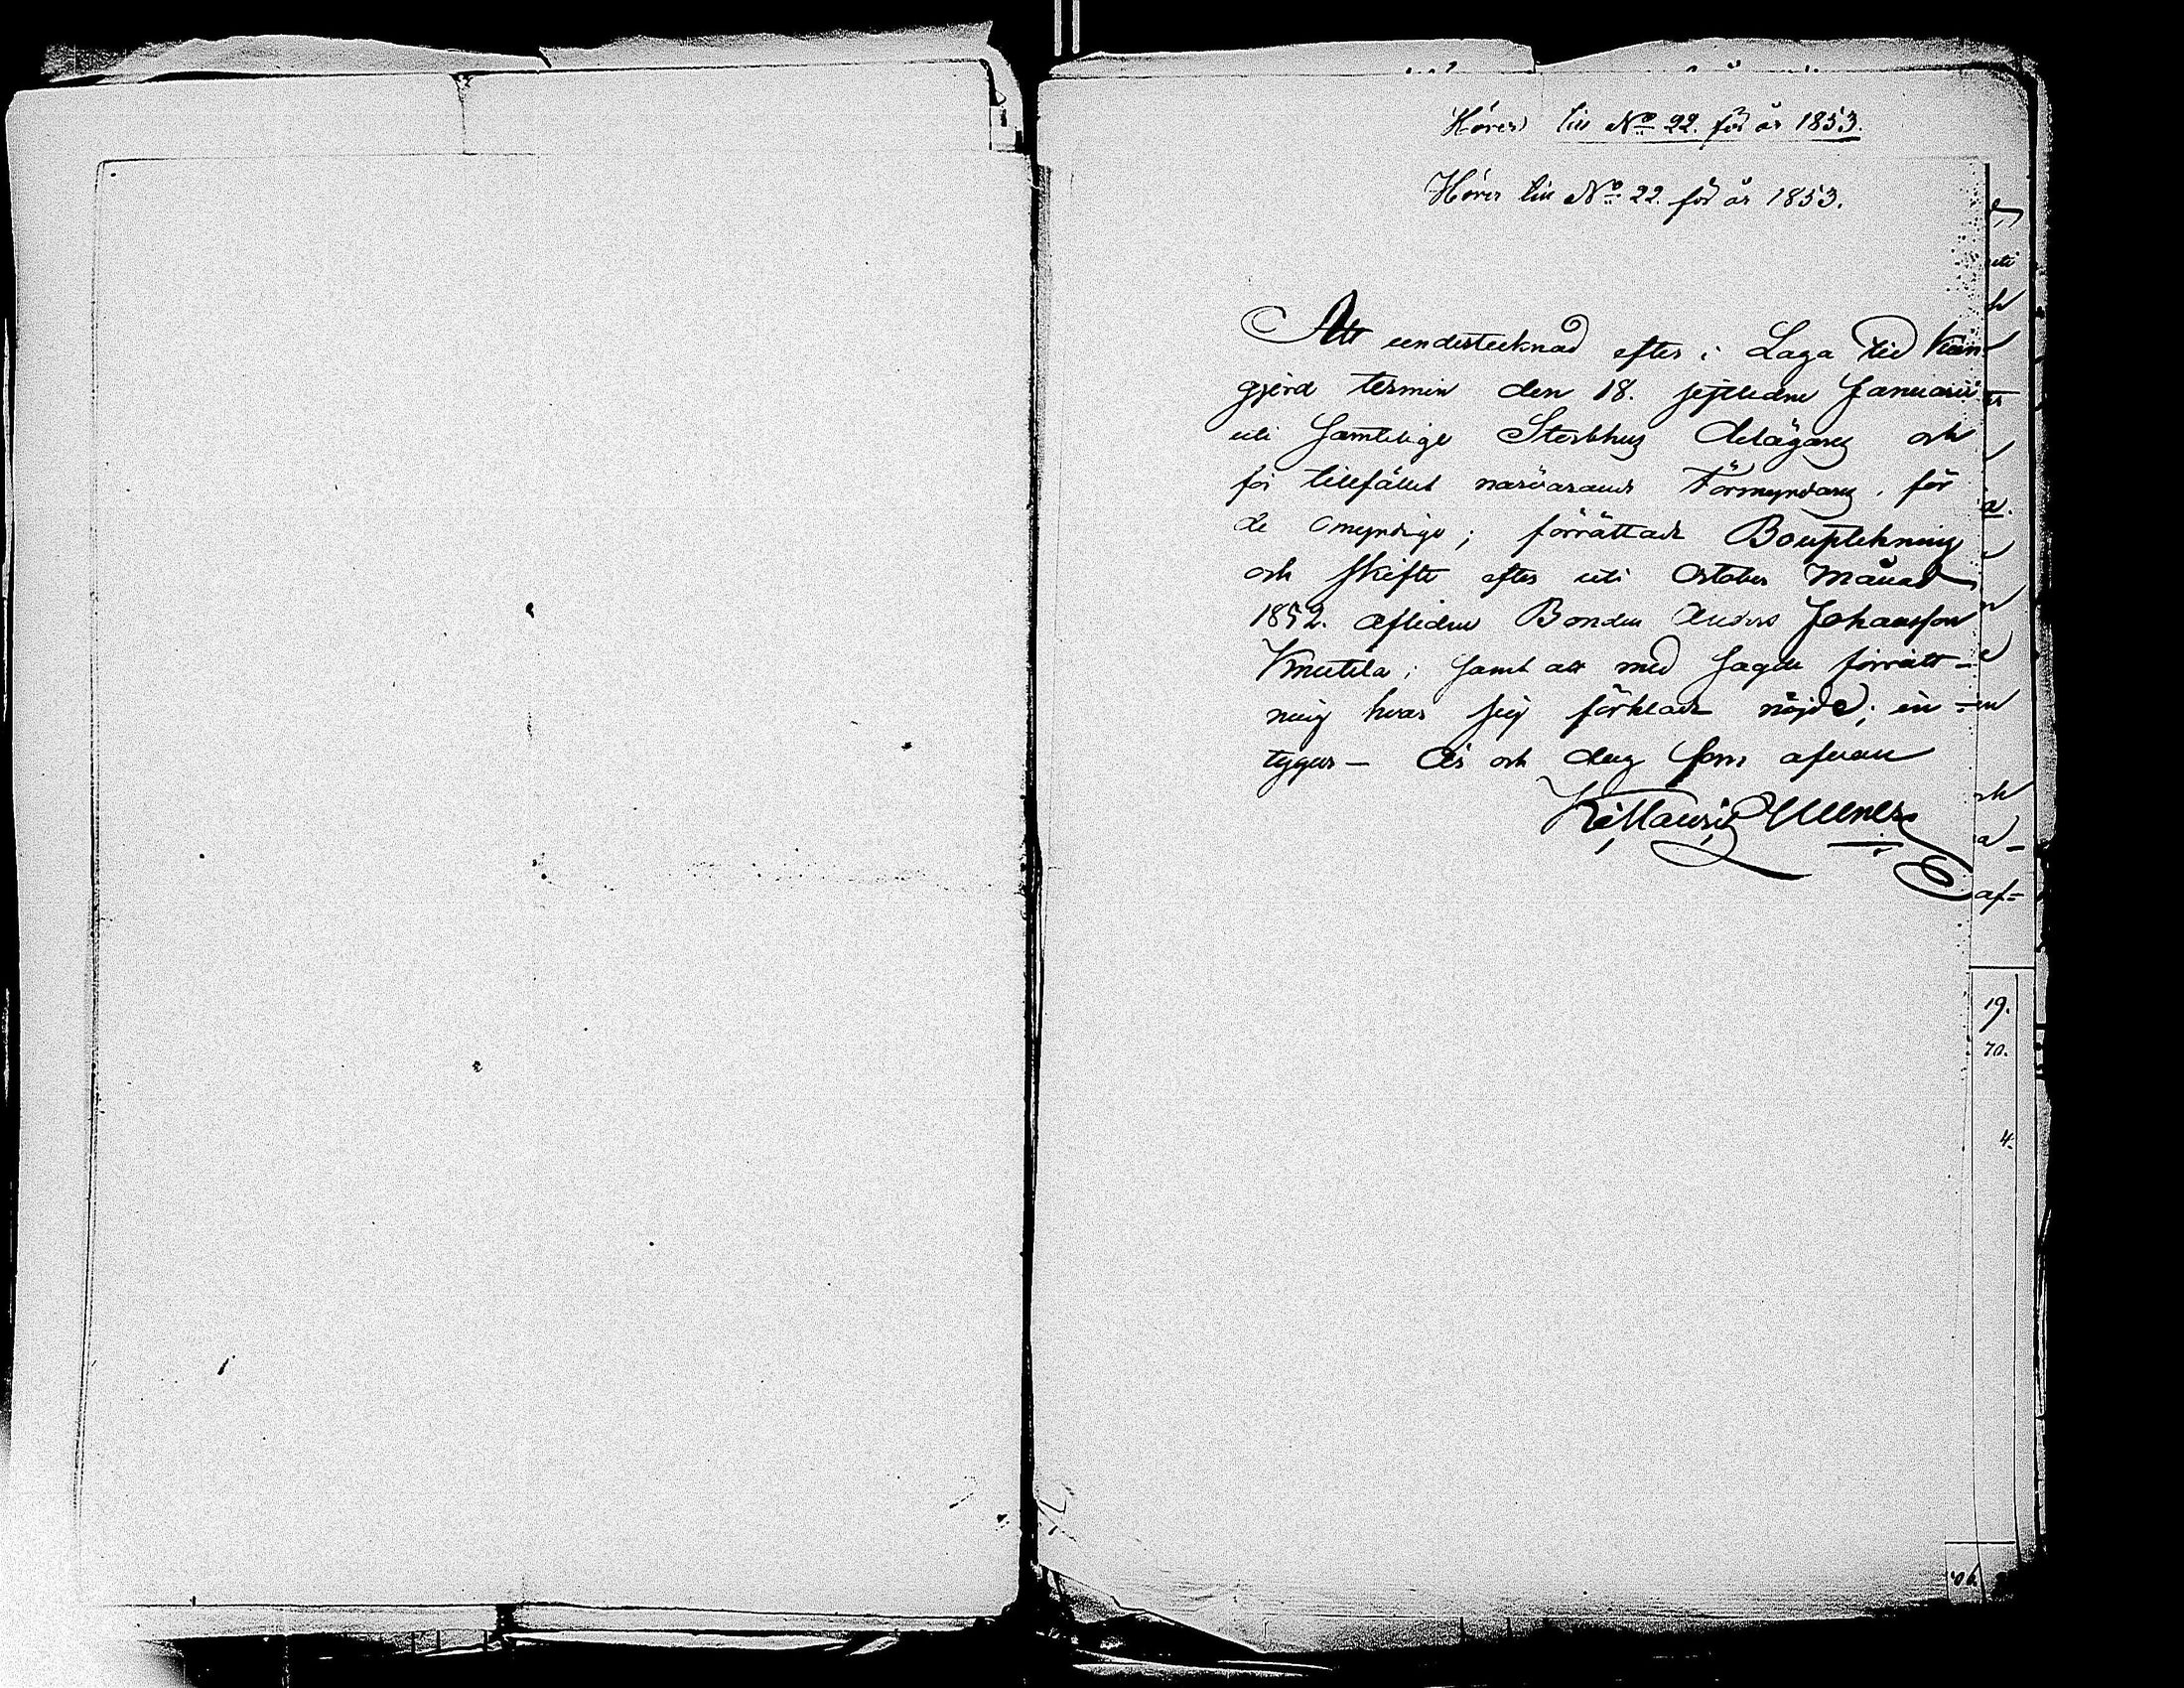 Hörer till No 22. för år 1853.
Hörer till No 22. för år 1853.
Att undertecknad efter i Laga tid kun-
gjord termin den 18. sistledne Januarii
uti samtelige Sterbhus delägares och
för tillfället närvarande Förmyndares, för
de Omyndige; förrättadt Bouptekning
och skifte efter uti October Månad
1852. aflidne Bonden Anders Johansson
Knutila; samt att med sagde förrätt-
ning hvar sig förklarat nöjde; in-
tygar — År och dag som ofvan